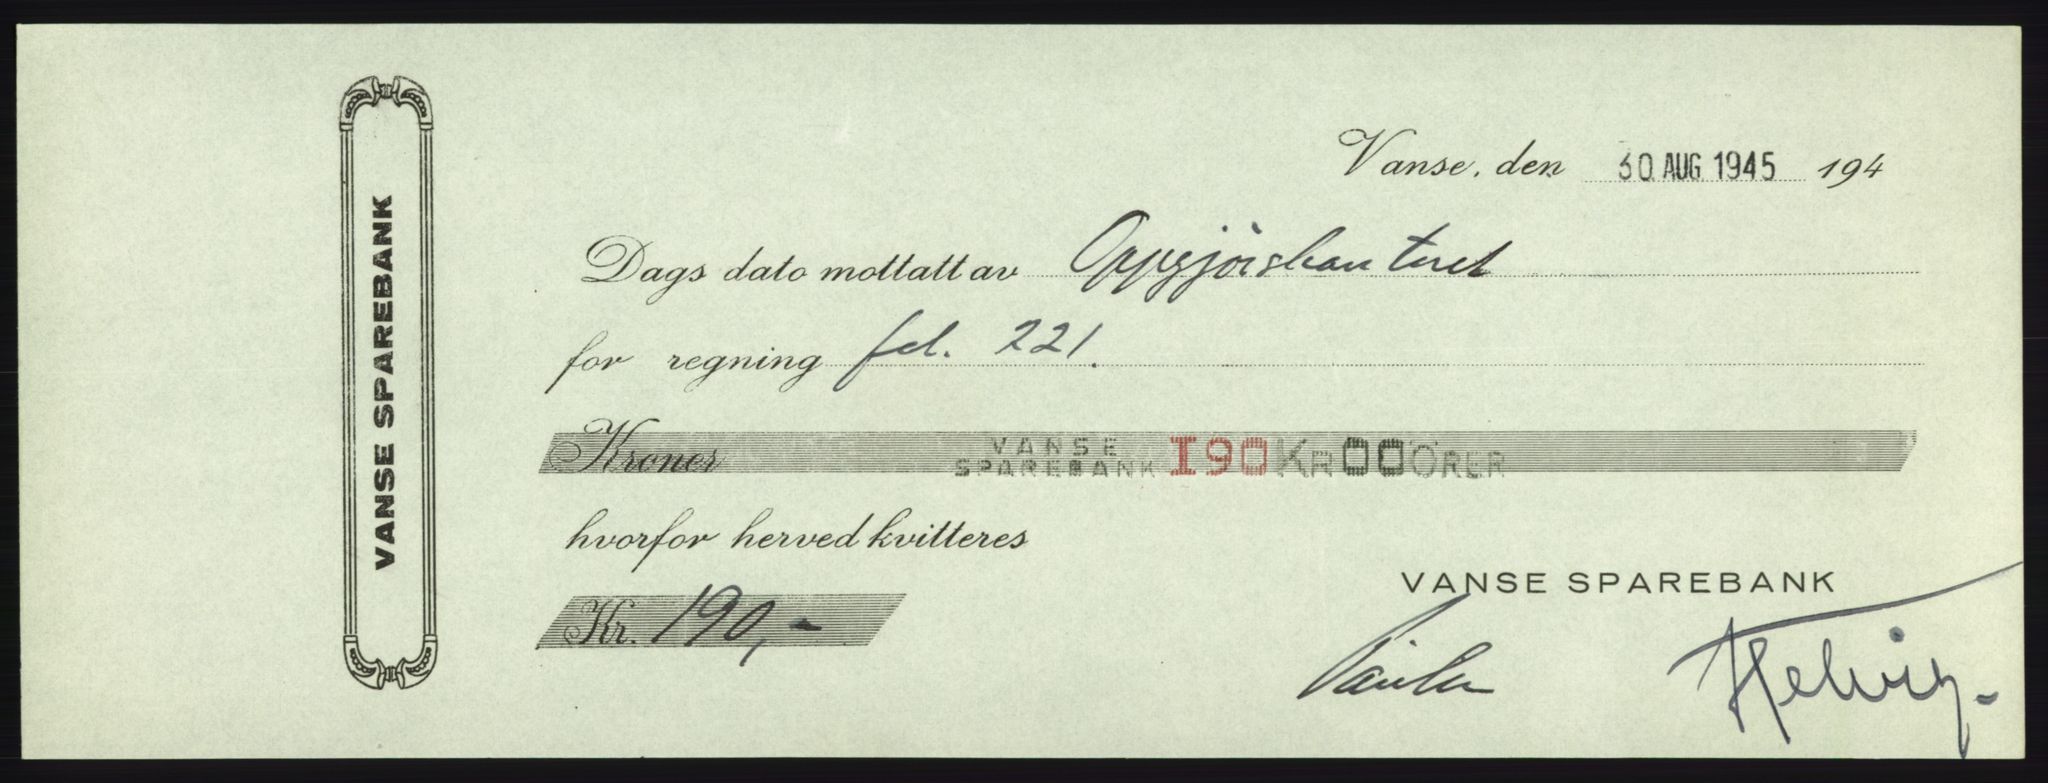 VANSE SPAREBANK
Vanse, den 30 AUG 1945 194
Dags dato mottatt av Oppgjörskontoret
for regning fol. 221.
Kroner VANSE SPAREBANK 190 KR 00 ÖRER
hvorfor herved kvitteres
Kr. 190,-
VANSE SPAREBANK